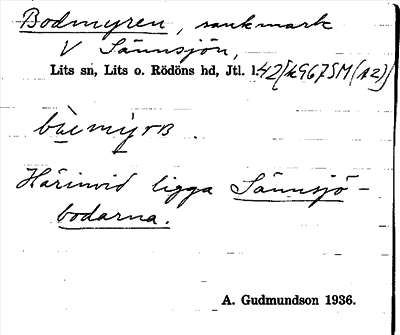 Bodmyren, sankmark
V Sännsjön,
Lits sn, Lits o. Rödöns hd, Jtl. 1.42[k967SM(12)]
Härinvid ligga Sännsjö-
bodarna.
A. Gudmundson 1936.